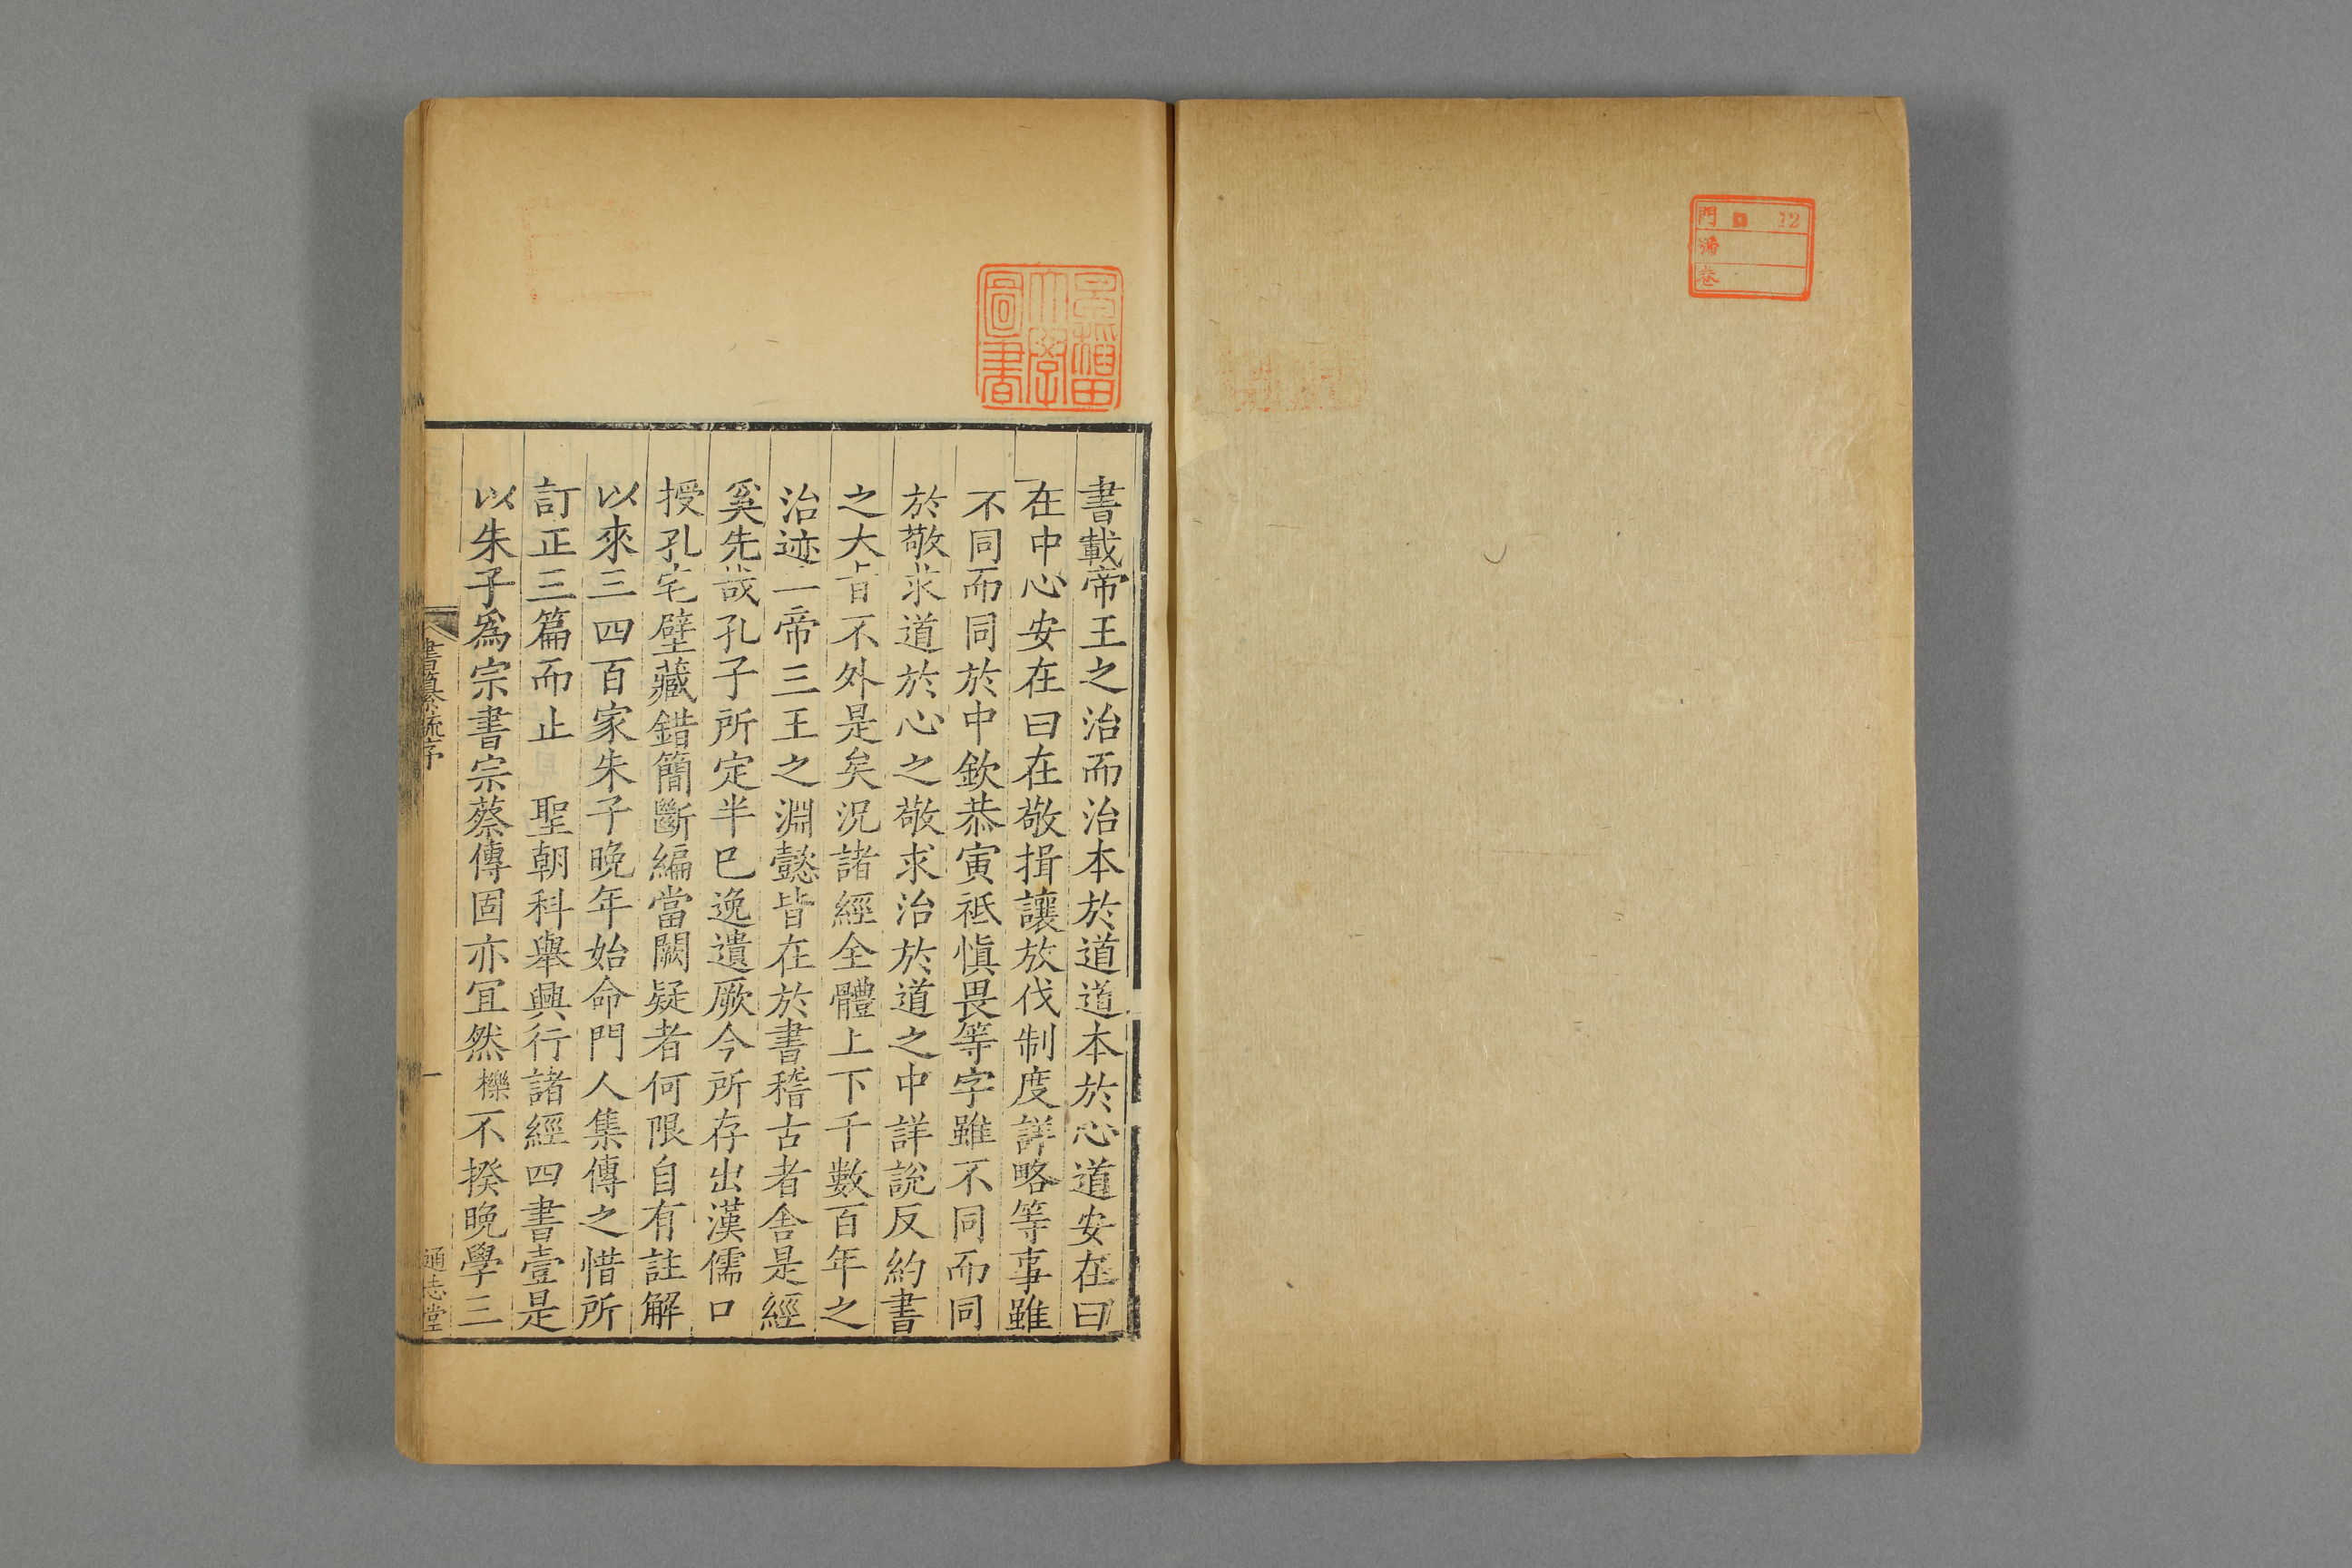 門 12
號
卷
早稻田
大學
圖書
書載帝王之治而治本於道道本於心道安在曰
在中心安在曰在敬揖讓放伐制度詳略等事雖
不同而同於中欽恭寅祗愼畏等字雖不同而同
於敬求道於心之敬求治於道之中詳說反約書
之大旨不外是矣況諸經全體上下千數百年之
治迹二帝三王之淵懿皆在於書稽古者舍是經
奚先哉孔子所定半已逸遺厥今所存出漢儒口
授孔宅壁藏錯簡斷編當闕疑者何限自有註解
以來三四百家朱子晚年始命門人集傳之惜所
訂正三篇而止　聖朝科舉興行諸經四書壹是
以朱子爲宗書宗蔡傳固亦宜然櫟不揆晚學三
書纂疏序
一
通志堂